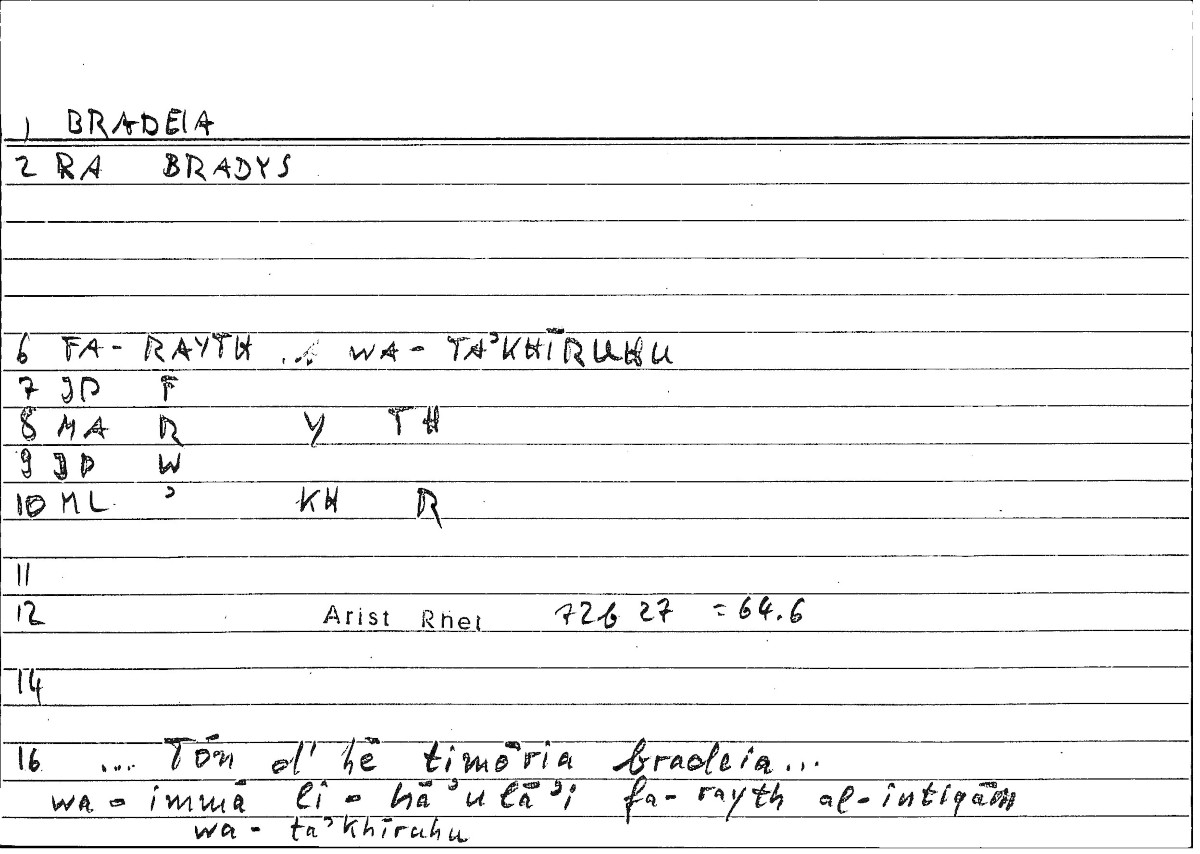 1 BRADEIA
2 RA BRADYS
6 FA- RAYTH ... WA- TA'KHĪRUHU
7 JD F
8 MA R Y TH
9 JD W
10 ML ' KH R
11
12 Arist Rhet 72b 27 = 64.6
14
16 ... Tōn d' hē timōria bradeia...
wa- immā li- hā'ulā'i fa- rayth al-intiqām
wa- ta'khīruhu